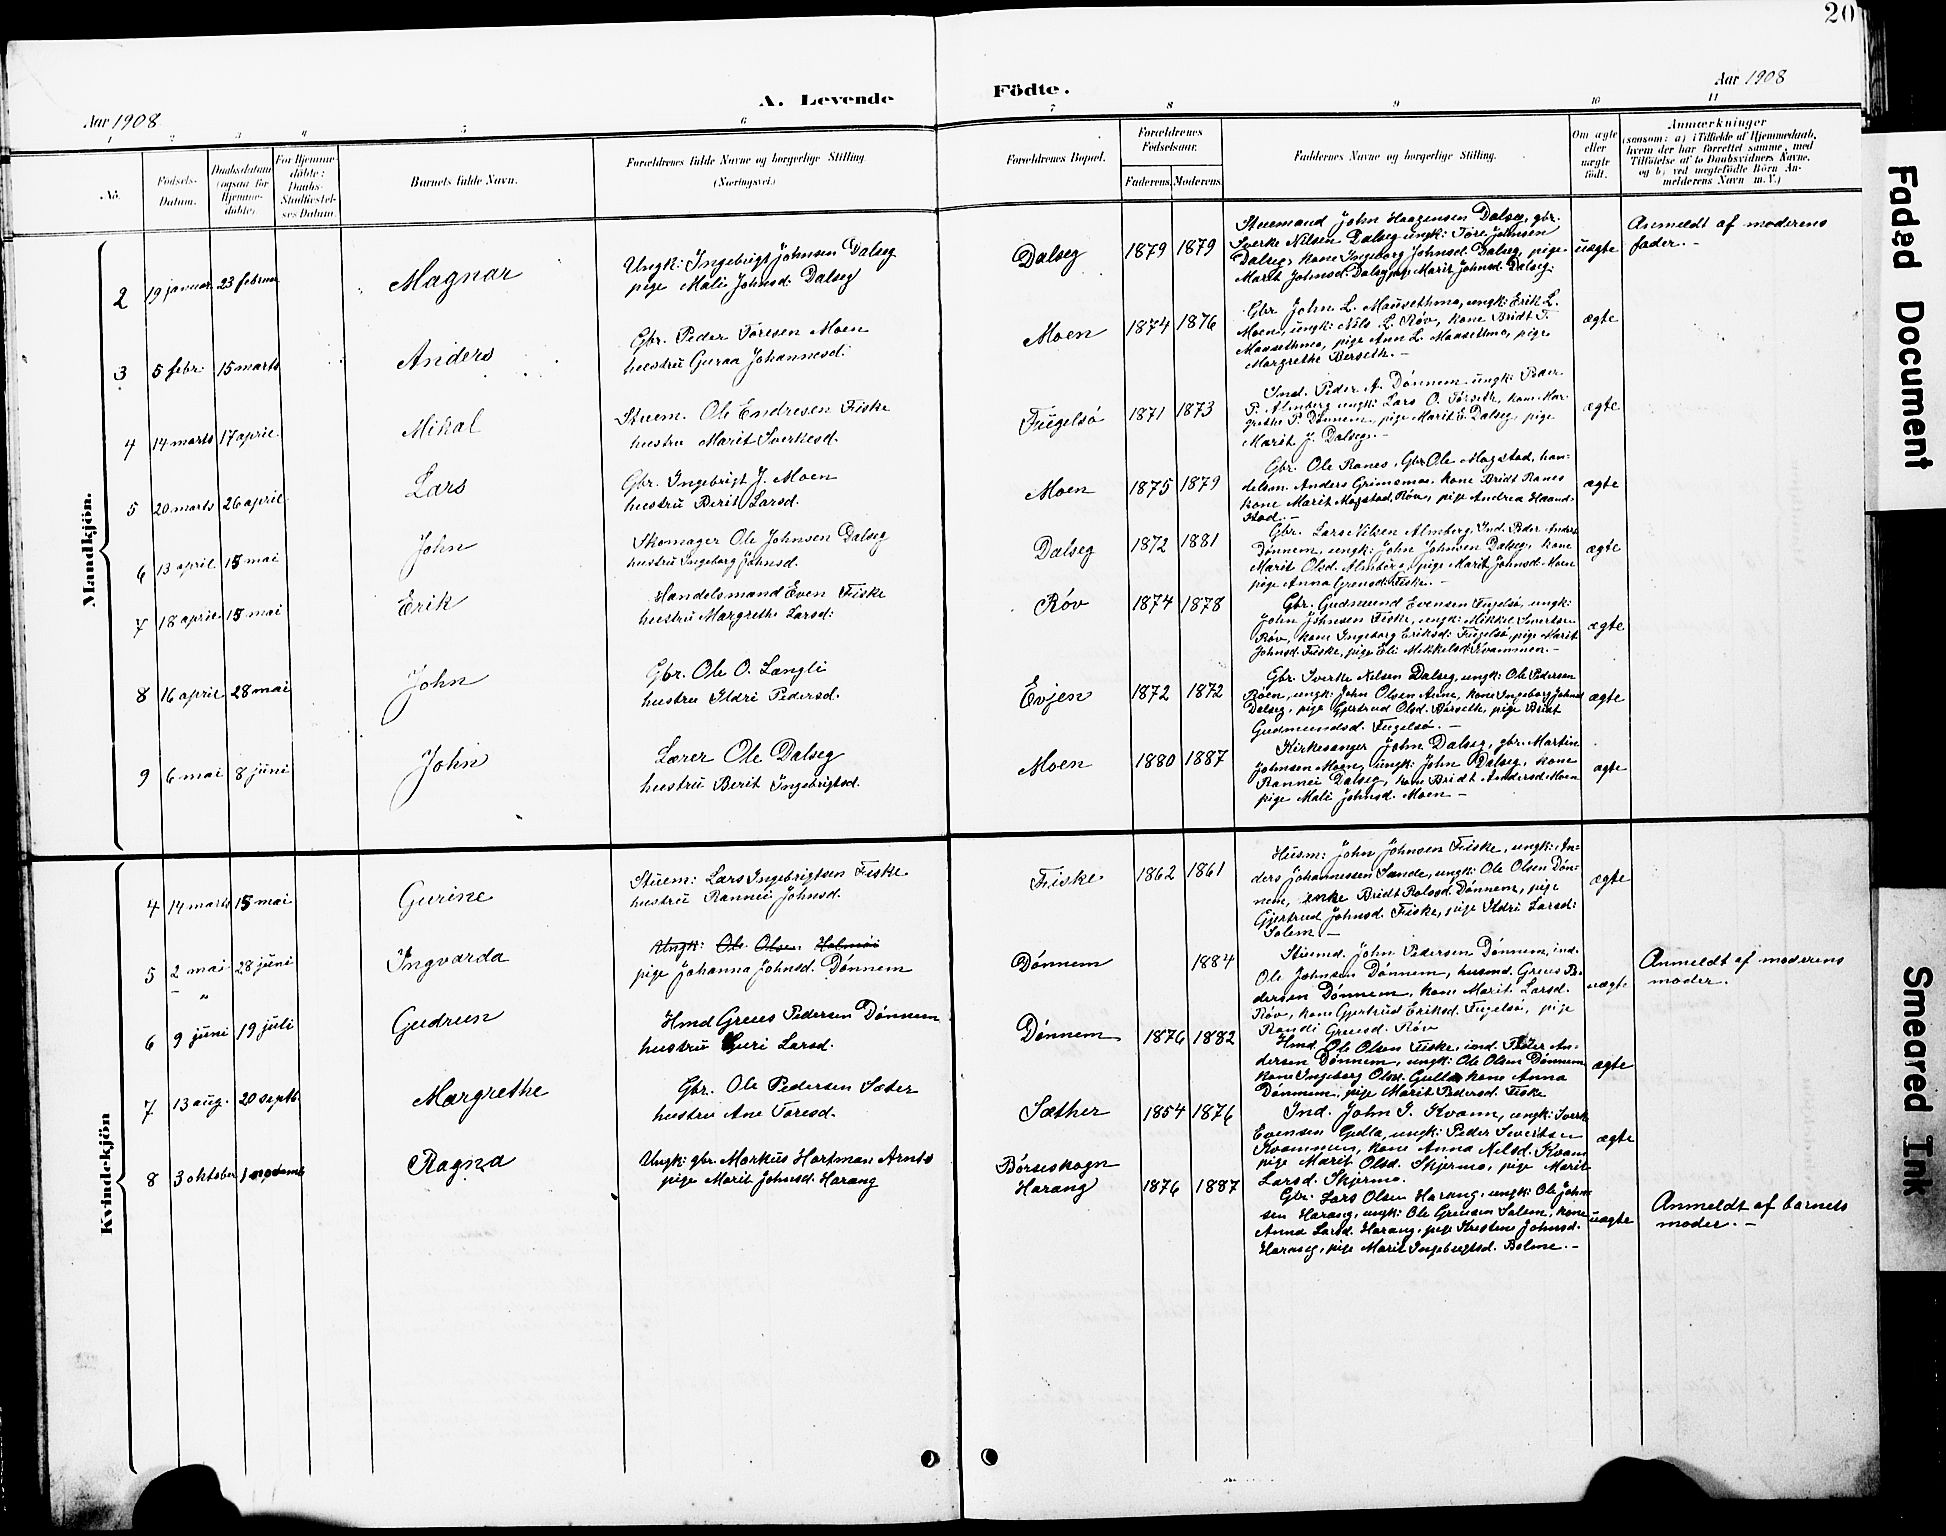 20
Aar 1908
A. Levende
Födte.
Aar 1908
1 2 3 4 5 6 7 8 9 10 11
No.
Fødsels-
Datum.
Daabsdatum
(ogsaa for
Hjemme-
døbte)
For Hjemme-
døbte:
Daabs-
Stadfæstel-
ses Datum.
Barnets fulde Navn.
Forældrenes fulde Navne og borgerlige Stilling.
(Næringsvei.)
Forældrenes Bopæl.
Forældrenes
Fødselsaar.
Faderens. Moderens.
Faddernes Navne og borgerlige Stilling.
Om ægte
eller
uægte
født.
Anmærkninger
(saasom: a) i Tilfælde af Hjemmedaab,
hvem der har forrettet samme, med
Tilføielse af to Daabsvidners Navne,
og b) ved uægtefødte Børn An-
melderens Navn m. V.)
Mandkjön.
2 19 januar 23 februar
Magnar
Ungk: Ingebrigt Johnsen Dalseg
pige Mali Johnsd. Dalseg
Dalseg
1879 1879
Stuemand John Haagensen Dalseg, gbr.
Sverke Nilsen Dalseg ungk: Tore Johnsen
Dalseg, kone Ingeborg Johnsd. Dalseg, pige
Marit Johnsd. Dalseg pige Marit Johnsd. Dalseg.
uægte
Anmeldt af moderens
fader. -
3 5 febr. 15 marts
Anders
Gbr. Peder Toresen Moen
hustru Guraa Johannesd.
Moen
1874 1876
Gbr John L. Mausethmo, ungk: Erik L.
Moen, ungk: Nils L. Røv, kone Bridt T.
Mausethmo, pige Ann L. Mausethmo, pige
Margrethe Berseth. -
ægte
4 14 marts 17 april.
Mikal
Stuem. Ole Endresen Fiske
hustru Marit Sverkesd.
Fugelsö
1871 1873
Ind. Peder A. Dönnem ungk: Peder
P. Almberg ungk: Lars O. Torseth, kone Mar-
grethe P. Dönnem, pige Marit E. Dalseg, pige
Marit J. Dalseg. -
ægte
5 20 marts 26 april
Lars
Gbr. Ingebrigt J. Moen
hustru Berit Larsd.
Moen
1875 1879
Gbr. Ole Ranes, Gbr Ole Mogstad, han-
delsm. Anders Grimsmo, kone Bridt Ranes
kone Marit Mogstad, Røv, pige Andrea Haand-
stad. -
ægte
6 13 april 15 mai
John
Skomager Ole Johnsen Dalseg
hustru Ingeborg Johnsd.
Dalseg
1872 1881
Gbr. Lars Nilsen Almberg, Ind. Peder Anders
Dönnem, ungk: John Johnsen Dalseg, kone
Marit Olsd. Almberg, pige Marit Johnsd. Moen
pige Anna Gruesd. Fiske. -
ægte
7 18 april 15 mai
Erik
Handelsmand Even Fiske
hustru Margrethe Larsd:
Röv
1874 1878
Gbr. Gudmund Evensen Fugelsö, ungk:
John Johnsen Fiske, ungk: Mikkel Sivertsen
Röv, kone Ingeborg Eriksd. Fugelsö, pige Marit
Johnsd. Fiske, pige Eli Mikkelsd. Kvammen. -
ægte
8 16 april 28 mai
John
Gbr. Ole O. Langli
hustru Ildri Pedersd.
Evjen
1872 1872
Gbr. Sverke Nilsen Dalseg, ungk: Ole Pedersen
Röen, ungk: John Olsen Aune, kone Ingeborg Johnsd
Dalseg, pige Gjertrud Olsd. Børseth, pige Bridt
Gudmundsd. Fugelsö. -
ægte
9 6 mai 8 juni
John
Lærer Ole Dalseg
hustru Berit Ingebrigtsd.
Moen
1880 1887
Kirkesanger John Dalseg, gbr. Martin
Johnsen Moen, ungk: John Dalseg, kone
Rannei Dalseg, kone Bridt Andersd. Moen
pige Mali Johnsd. Moen -
ægte
Kvindekjön
4 14 marts 15 mai
Gurine
Stuem: Lars Ingebrigtsen Fiske
hustru Rannei Johnsd.
Fiske
1862 1861
Husm: John Johnsen Fiske, ungk: An-
ders Johannessen Sande, ungk: Ole Olsen Dön-
nem, enke Bridt Rolvsd. Dönnem, pige
Gjertrud Johnsd. Fiske, pige Ildri Larsd:
Solem -
ægte
5 2 mai 28 juni
Ingvarda
Ungk: Ole Olsen Holmöi
pige Johanna Johnsd. Dönnem
Dönnem
1884
Stuemd. John Pedersen Dönnem, ind.
Ole Johnsen Dönnem, husmd. Greus Pe-
dersen Dönnem, kone Marit Larsd.
Røv, kone Gjertrud Eriksd. Fugelsö, pige
Randi Gruesd. Röv
uægte
Anmeldt af moderens
moder.
6 9 juni 19 juli
Gudrun
Hmd Greus Pedersen Dönnem
hustru Guri Larsd.
Dönnem
1876 1882
Hmd. Ole Olsen Fiske, ind. Peder An-
dersen Dönnem, ungk: Ole Olsen Dönnem
kone Ingeborg Olsd. Gulla, kone Anna
Dönnem, pige Marit Pedersd. Fiske
ægte
7 13 aug. 20 septb.
Margrethe
Gbr. Ole Pedersen Sæter
hustru Ane Toresd.
Sæther
1854 1876
Ind. John I. Kvam, ungk: Sverk
Evensen Gulla, ungk: Peder Sivertsen
Kvammen, kone Anna Nilsd. Kvam
pige Marit Olsd. Skjermo, pige Marit
Larsd. Skjermo.
ægte
8 3 oktober 1 novemb
Ragna
Ungk: gbr. Markus Hartman Arnts
pige Marit Johnsd. Harang
Börseskogn
Harang
1876 1887
Gbr. Lars Olsen Harang, ungk: Ole John-
sen Harang, ungk: Ole Gruesen Solem, kone
Anna Larsd. Harang, pige Kristine Johnsd.
Harang, pige Marit Ingebrigtsd. Bolme. -
uægte
Anmeldt af barnets
moder. -
Faded Document
Smeared Ink